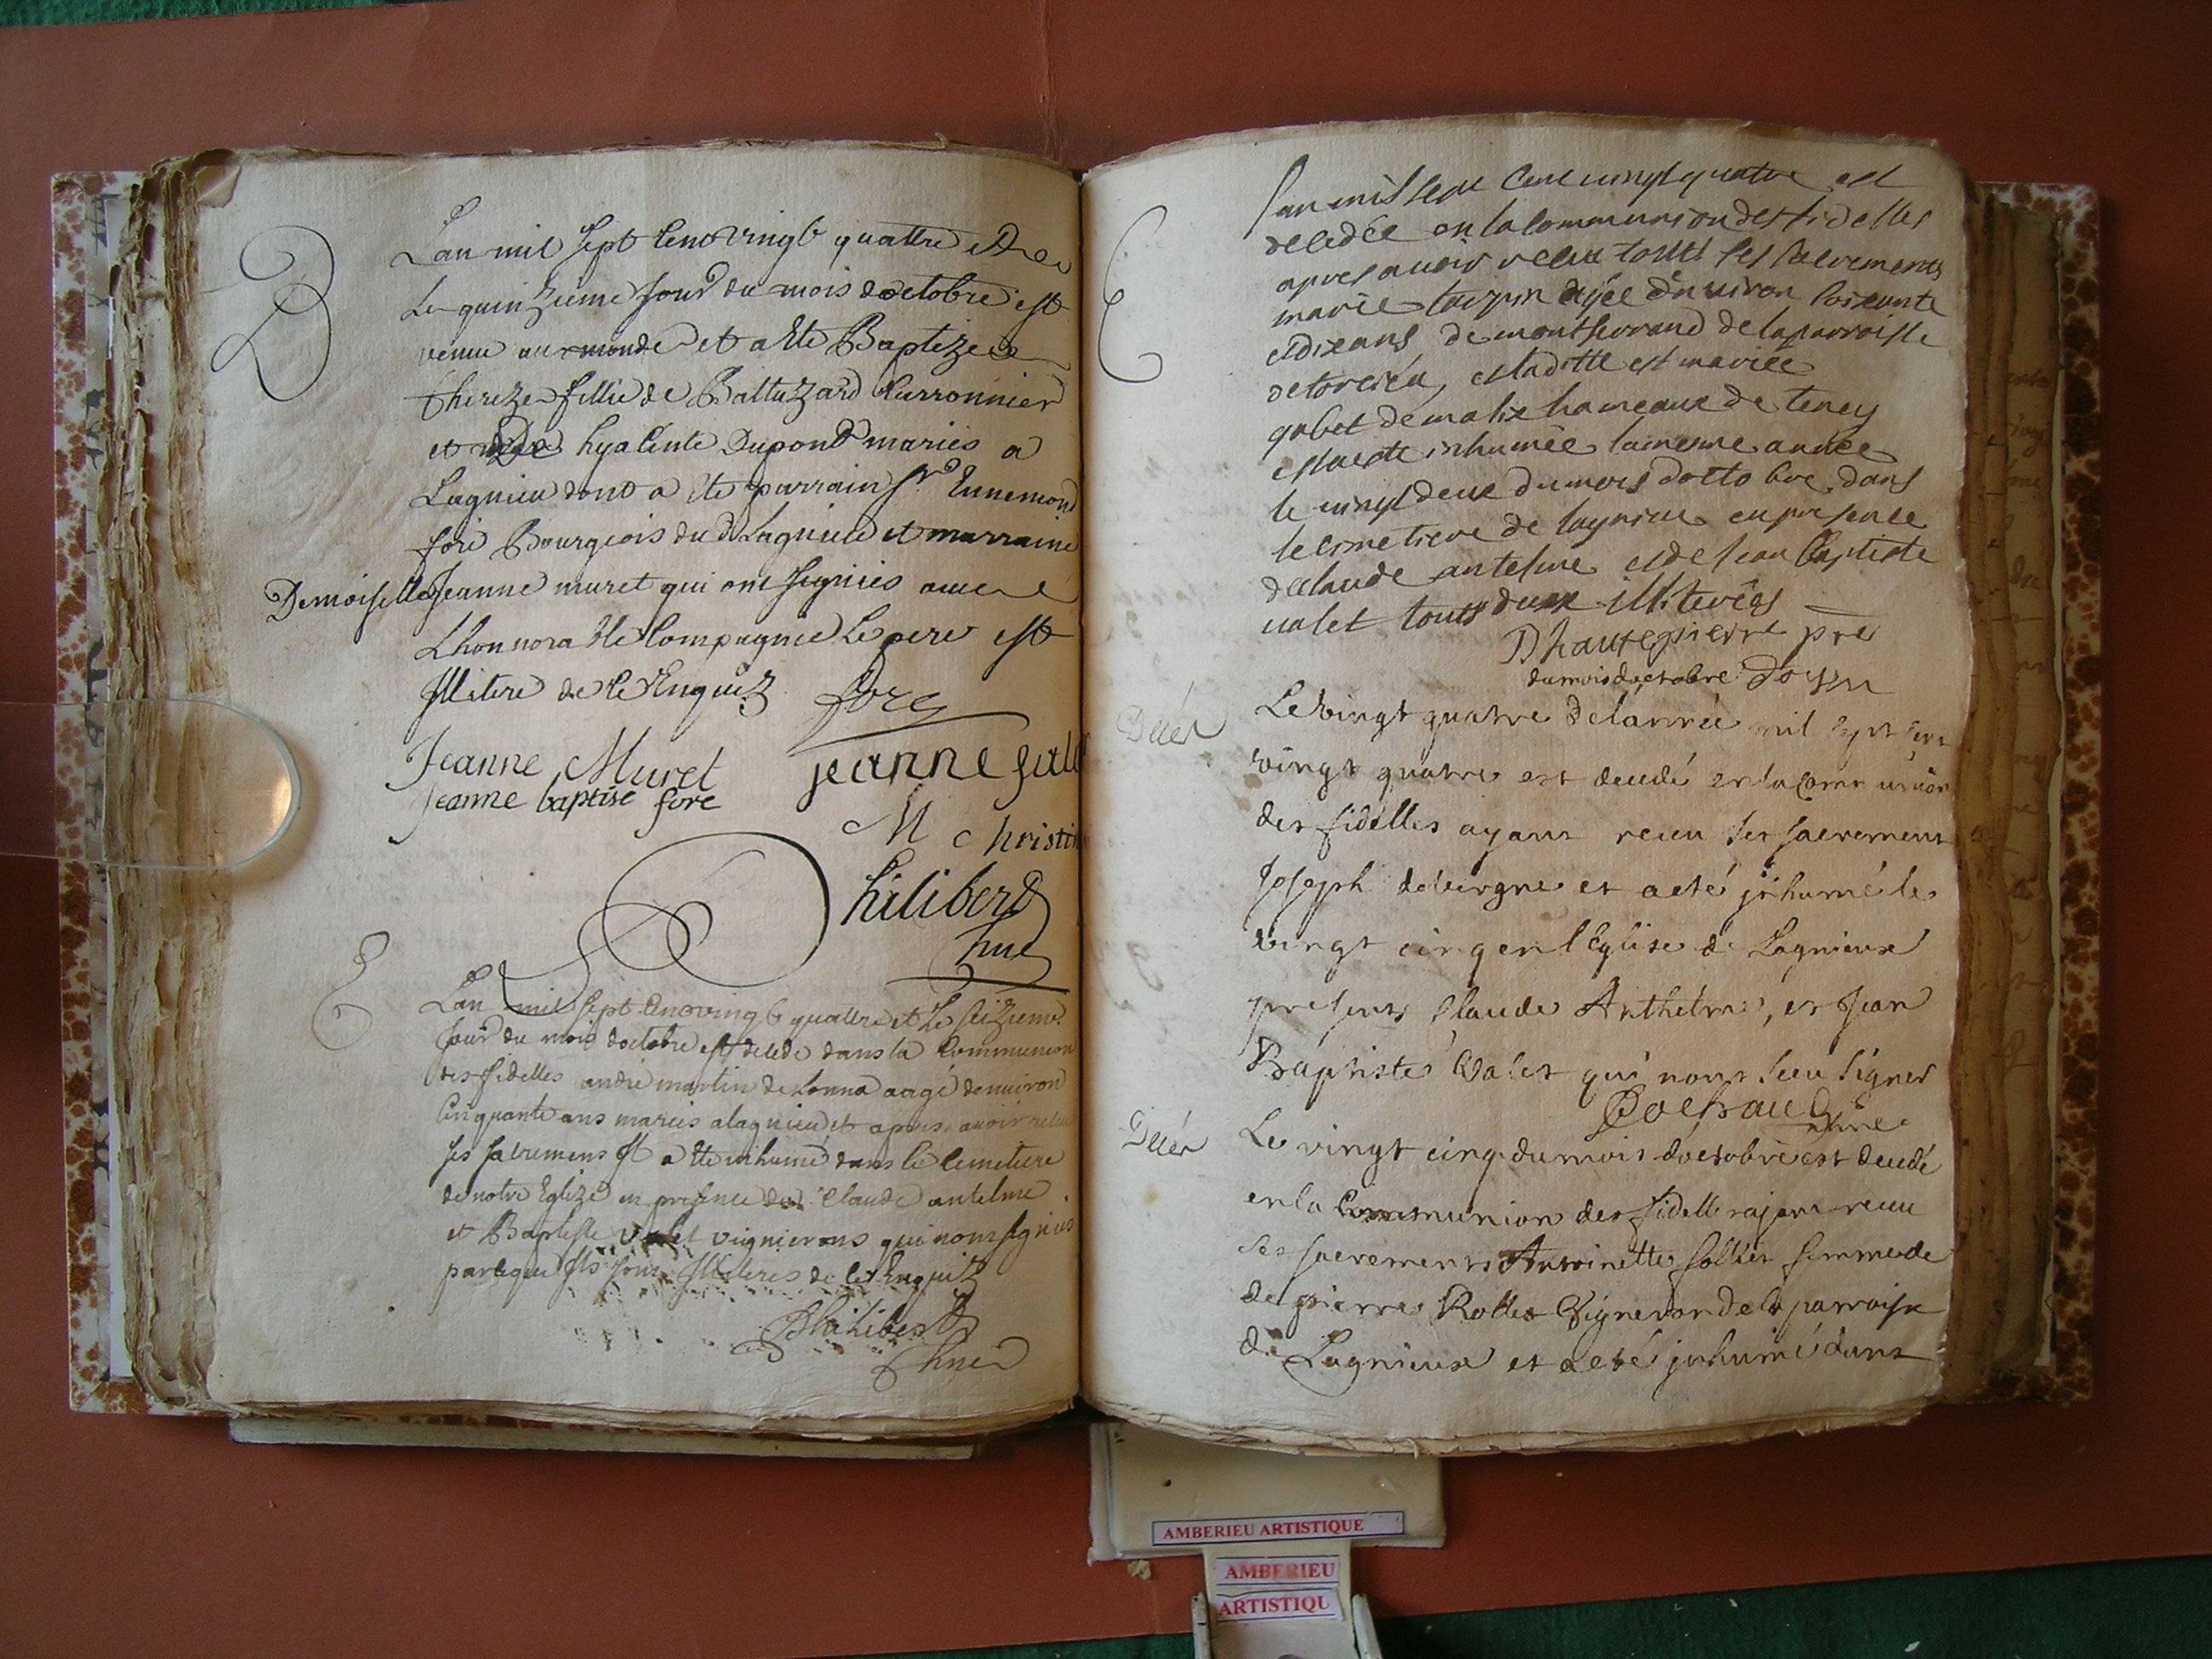 B
Lan mil sept cent vingt quattre et
Le quinzieme jour du mois doctobre est
venue au monde et a ette Baptizee
therize fillie de Baltazard
et de hyacinte Dupont mariés a
Lagnieu dont a ete parrain sr Ennemond
fore Bourgeois du d Lagnieu et marraine
Demoiselle Jeanne muret qui ont signiés avec
Lhonnorable compagnie Le pere est
Illitere de ce Enquiz fore
Jeanne Muret jeanne
Jeanne baptise fore
M christi
Philibert
E
Lan mil sept cent vingt quattre et Le seizieme
Jour du mois doctobre est decede dans la communion
des fidelles andre martin de Lonna aagé denuiron
Cinquante ans mariés a lagnieu et apres auoir receu
ses sacremens Il a ette inhume dans le cemetiere
de notre Eglize en presence de Claude antelme
et Baptiste valet vignierons qui nont signies
parceque Ils sont Illiteres de ce Enquiz
Philibert
E
lan mil sept cent vingt quatre est
decedée en la communion des fidelles
apres auoir receu touts ses sacrements
marie agée denuiron soixante
et dix ans de montferrand de la parroisse
de torcieu, et laditte est mariée
gobet de malix hameaux de tency
et a este inhumée la mesme année
le vingt deux du mois docto bre dans
le cimetiere de lagnieu en presence
de claude antelme et de jean baptiste
ualet touts deux illiterés
Dhautepierre pre
du mois doctobre doyen
Décéz
Le vingt quatre de lannée mil sept cent
vingt quatre est decedé en la communion
des fidelles ayant receu ses sacrements
Joseph delvigne et a eté inhumé le
vingt cinq en l'Eglise de Lagnieux
presents Claude Anthelme, et Jean
Baptiste Valet qui nont sceu signer
Décéz
Le vingt cinq du mois doctobre est decedé
en la Communion des fidelles ajant receu
ses sacrements Antoinette femme de
de pierre Vigneron de la parroisse
de Lagnieux et a eté inhumé dans
AMBERIEU ARTISTIQUE
AMBERIEU
ARTISTIQU